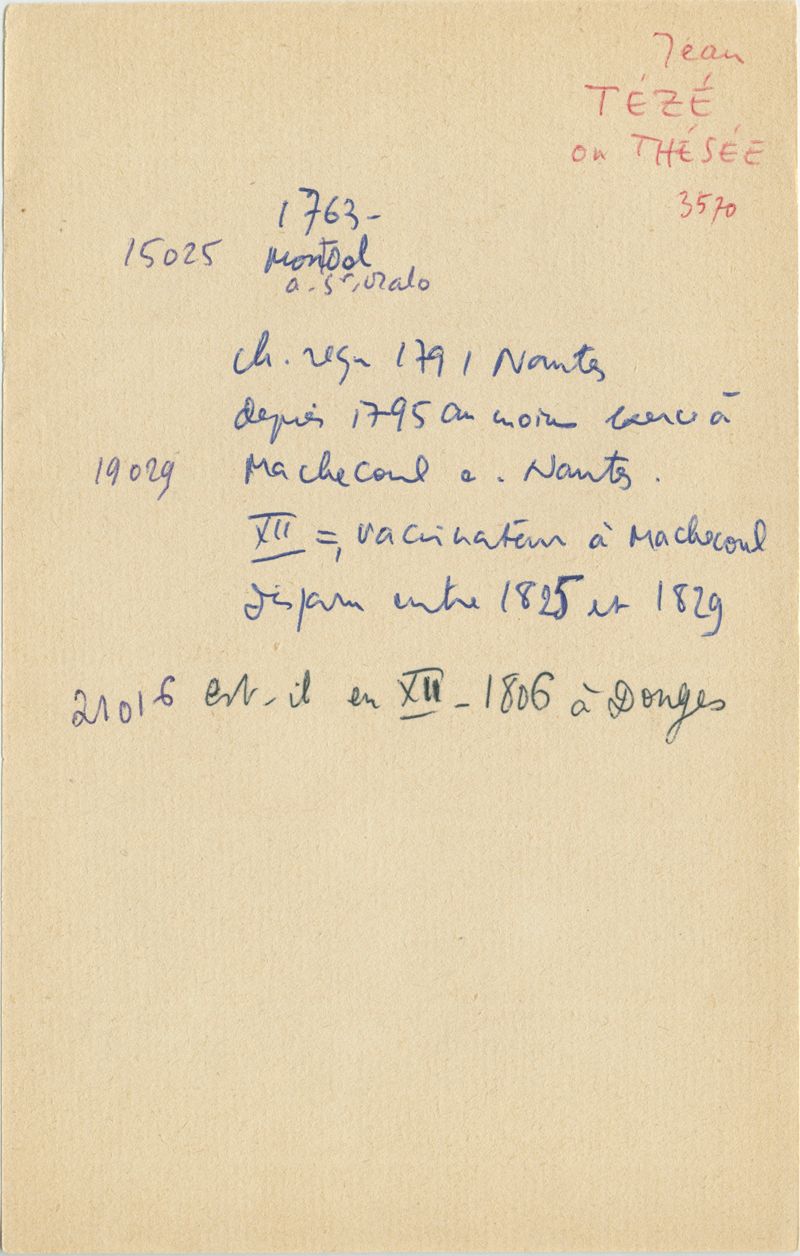 Jean
TÉZÉ
ou THÉSÉE
3570
1763-
15025 Montdol
a. St. Malo
ch. reçu 1791 Nantes
depuis 1795 au moins exerce à
19029 Machecoul a. Nantes.
XII =, vaccinateur à Machecoul
disparu entre 1825 et 1829
21016 est-il en XII - 1806 à Donges